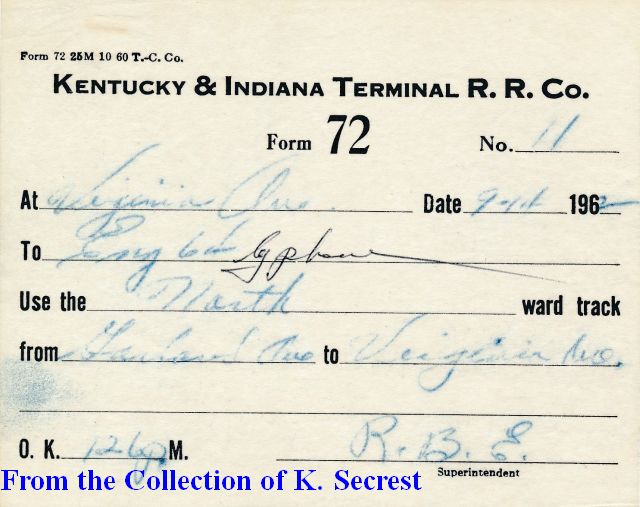 Form 72 25M 10 60 T.-C. Co.
KENTUCKY & INDIANA TERMINAL R. R. CO.
Form 72 No. 11
At Virginia Ave. Date 1962
To Eng
Use the North ward track
from Garland Ave to Virginia Ave.
O. K. 126 P.M. R. B. E.
Superintendent
From the Collection of K. Secrest